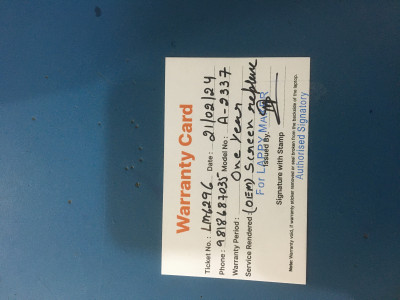 Warranty Card
Ticket No.: LM6296 Date: 21/02/24
Phone: 9818687035 Model No: A-2337
Warranty Period: One year
Service Rendered (OEM) Screen replace
For LARRY MA
Issued By:
Signature with Stamp
Authorised Signatory
Note: Warranty void, if warranty sticker removed or seal broken from the backside of the laptop.